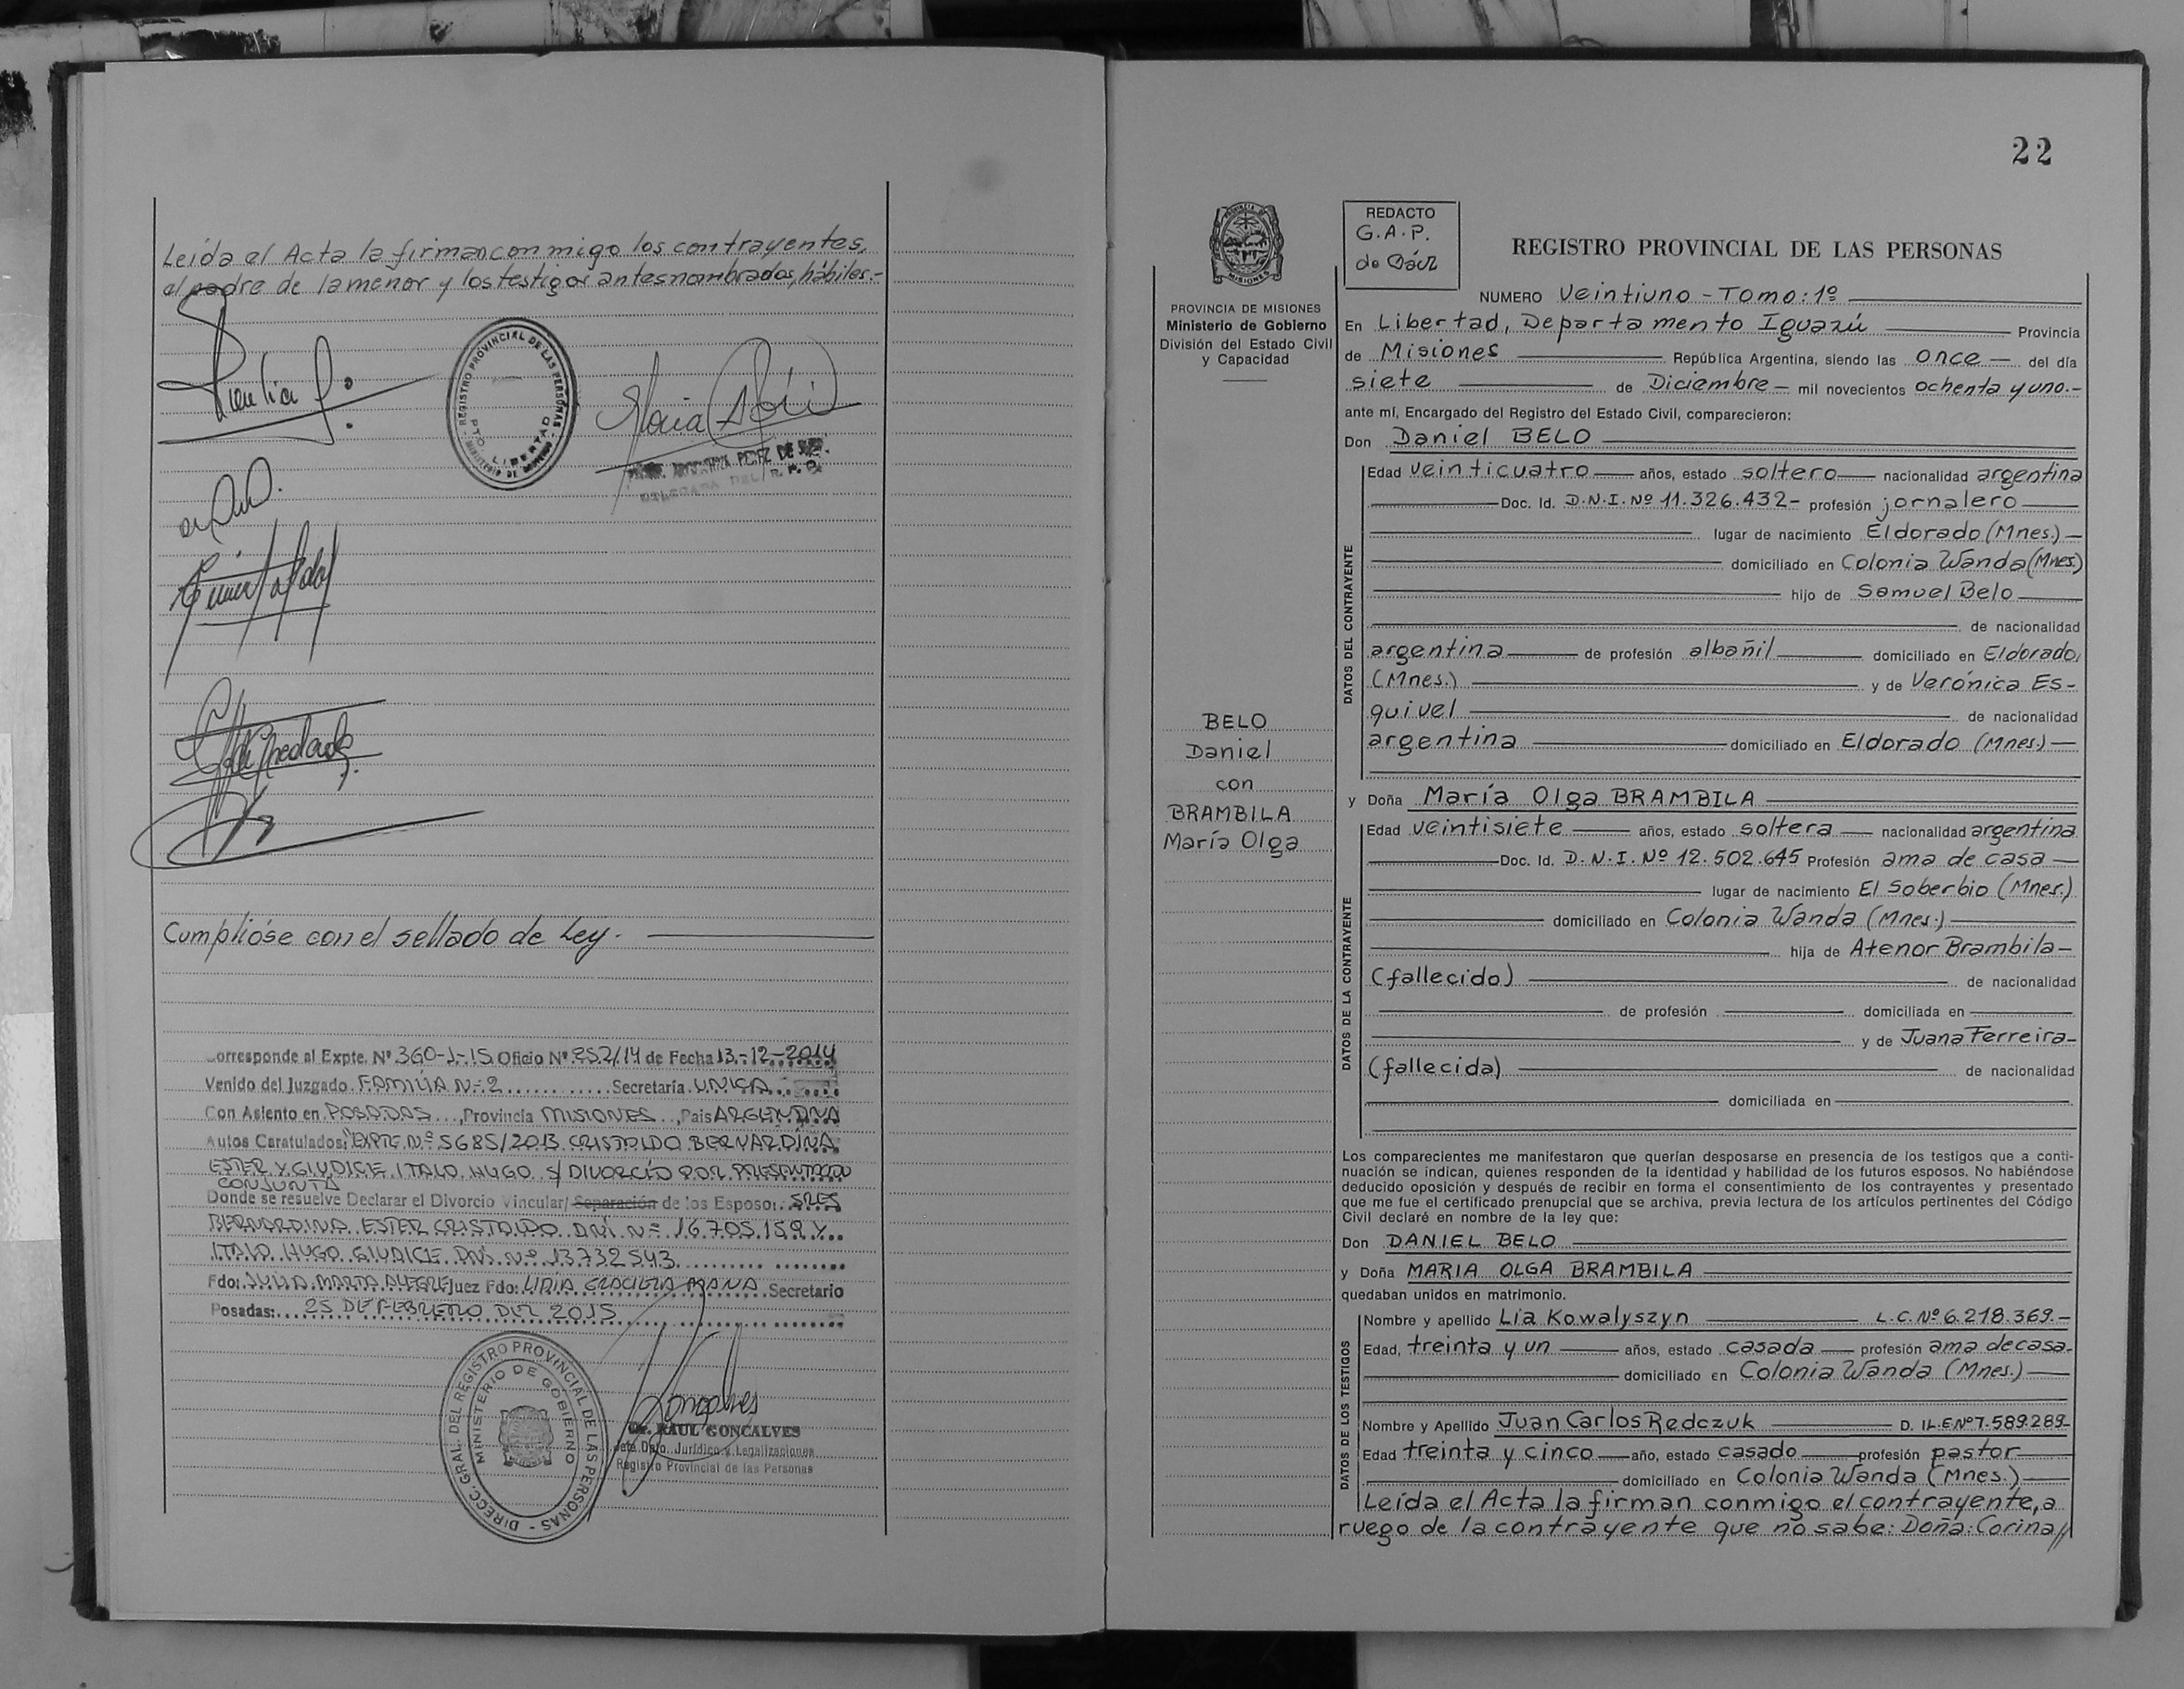 Leída el Acta la firman conmigo los contrayentes,
el padre de la menor y los testigos antes nombrados, hábiles.-
REGISTRO PROVINCIAL DE LAS PERSONAS
LIBERTAD
Cumplióse con el sellado de Ley.
Corresponde al Expte. Nº 360-J-15 Oficio Nº 252/14 de Fecha 13.-12-2014
Venido del Juzgado FAMILIA N-2 Secretaría UNICA
Con Asiento en POSADAS, Provincia MISIONES, Pais ARGENTINA
Autos Caratulados: "EXPTE. Nº 5685/2013 CRISTALDO BERNARDINA
ESTER Y GIUDICIE ITALO HUGO S/ DIVORCIO POR PRESENTACION
CONJUNTA
Donde se resuelve Declarar el Divorcio Vincular/ Separación de los Esposo: SRES
BERNARDINA ESTER CRISTALDO DNI. Nº 16.705.159 Y
ITALO HUGO GIUDICIE DNI. Nº 13.732.543
Fdo: JULIA MARTA ALEGRE Juez Fdo: LIDIA GRACIELA Secretario
Posadas: 25 DE FEBRERO DEL 2015
DIRECC. GRAL. DEL REGISTRO PROVINCIAL DE LAS PERSONAS
MINISTERIO DE GOBIERNO
Dr. RAUL GONCALVES
Jefe Dpto. Jurídico y Legalizaciones
Registro Provincial de las Personas
22
PROVINCIA DE MISIONES
Ministerio de Gobierno
División del Estado Civil
y Capacidad
BELO
Daniel
con
BRAMBILA
María Olga
REDACTO
G.A.P.
de Dácz
REGISTRO PROVINCIAL DE LAS PERSONAS
NUMERO Veintiuno - Tomo: 1º
En Libertad, Departamento Iguazú Provincia
de Misiones República Argentina, siendo las once del día
siete de Diciembre mil novecientos ochenta y uno.-
ante mí, Encargado del Registro del Estado Civil, comparecieron:
Don Daniel BELO
DATOS DEL CONTRAYENTE
Edad veinticuatro años, estado soltero nacionalidad argentina
Doc. Id. D.N.I. Nº 11.326.432- profesión jornalero
lugar de nacimiento Eldorado (Mnes.)
domiciliado en Colonia Wanda (Mnes.)
hijo de Samuel Belo
de nacionalidad
argentina de profesión albañil domiciliado en Eldorado,
(Mnes.) y de Verónica Es-
quivel de nacionalidad
argentina domiciliado en Eldorado (Mnes.)
y Doña María Olga BRAMBILA
DATOS DE LA CONTRAYENTE
Edad veintisiete años, estado soltera nacionalidad argentina
Doc. Id. D.N.I. Nº 12.502.645 Profesión ama de casa
lugar de nacimiento El Soberbio (Mnes.)
domiciliado en Colonia Wanda (Mnes.)
hija de Atenor Brambila
(fallecido) de nacionalidad
de profesión domiciliada en
y de Juana Ferreira
(fallecida) de nacionalidad
domiciliada en
Los comparecientes me manifestaron que querían desposarse en presencia de los testigos que a conti-
nuación se indican, quienes responden de la identidad y habilidad de los futuros esposos. No habiéndose
deducido oposición y después de recibir en forma el consentimiento de los contrayentes y presentado
que me fue el certificado prenupcial que se archiva, previa lectura de los artículos pertinentes del Código
Civil declaré en nombre de la ley que:
Don DANIEL BELO
y Doña MARIA OLGA BRAMBILA
quedaban unidos en matrimonio.
DATOS DE LOS TESTIGOS
Nombre y apellido Lia Kowalyszyn L.C. Nº 6.218.369.-
Edad, treinta y un años, estado casada profesión ama de casa.
domiciliado en Colonia Wanda (Mnes.)
Nombre y Apellido Juan Carlos Redczuk D. I L.E. Nº 7.589.289-
Edad treinta y cinco año, estado casado profesión pastor
domiciliado en Colonia Wanda (Mnes.)
Leída el Acta la firman conmigo el contrayente, a
ruego de la contrayente que no sabe: Doña: Corina//